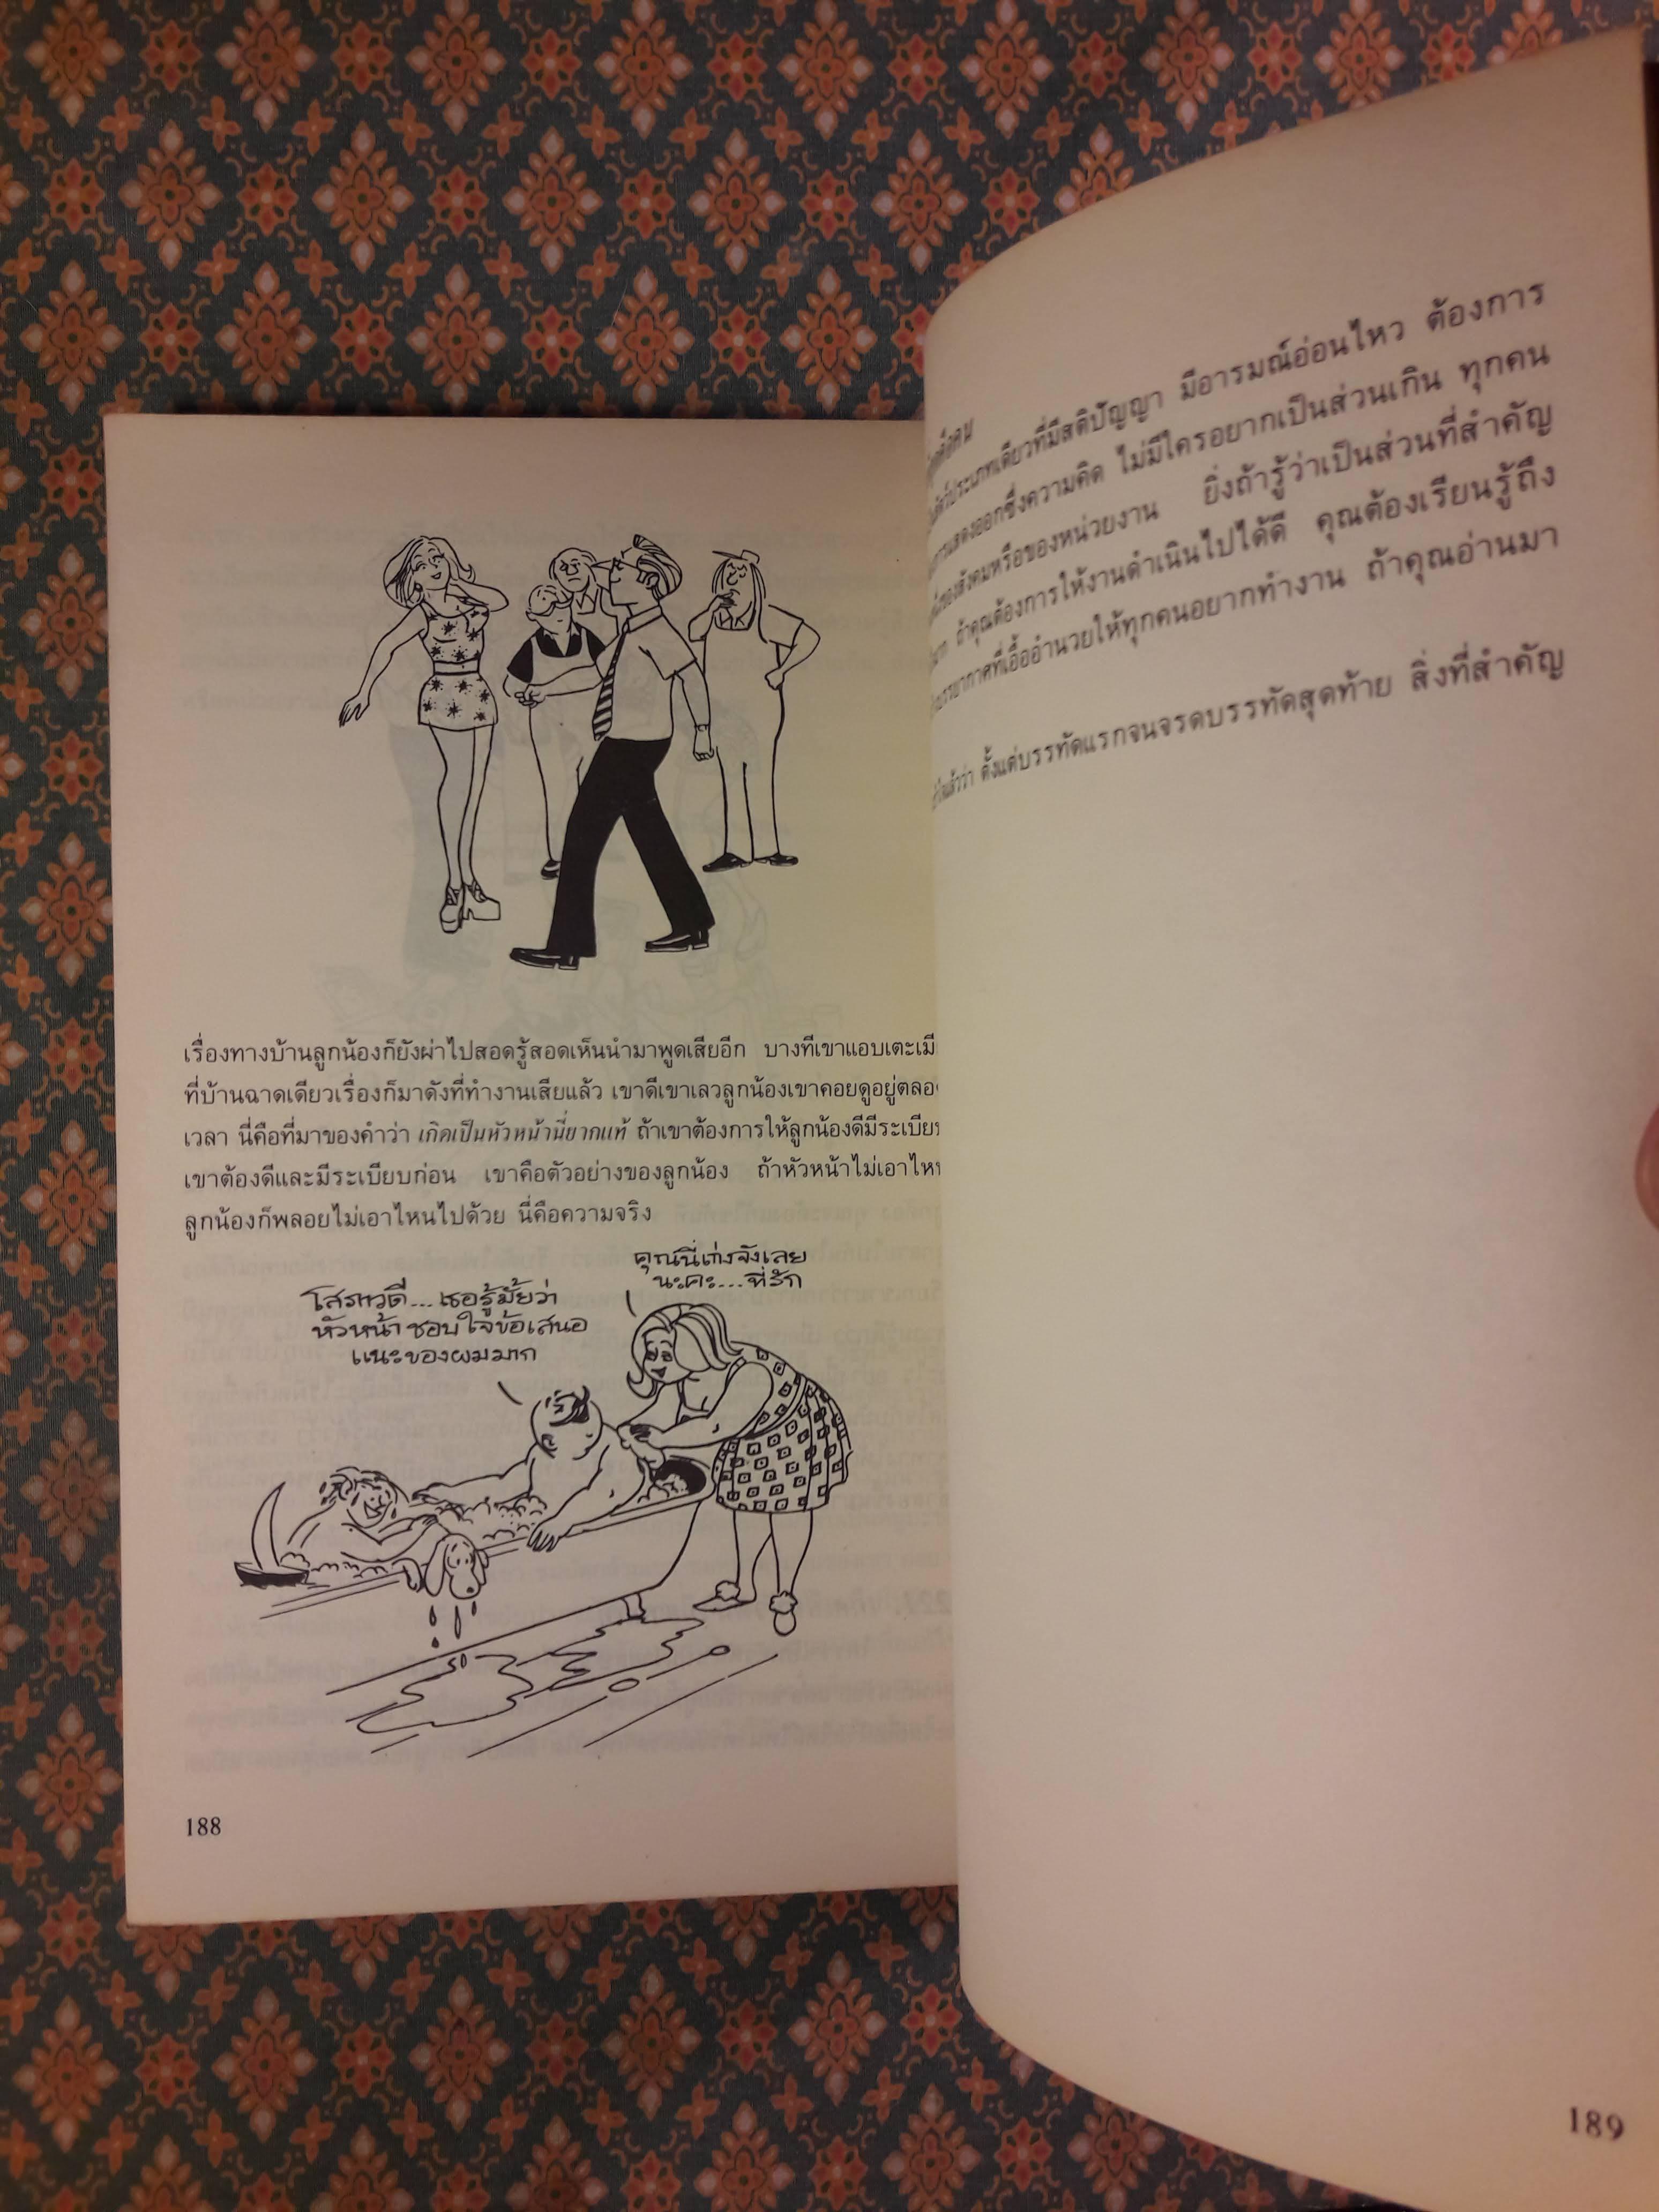 เรื่องทางบ้านลูกน้องก็ยังผ่าไปสอดรู้สอดเห็นนำมาพูดเสียอีก บางทีเขาแอบเตะเมี
ที่บ้านฉาดเดียวเรื่องก็มาดังที่ทำงานเสียแล้ว เขาดีเขาเลวลูกน้องเขาคอยดูอยู่ตลอ
เวลา นี่คือที่มาของคำว่า เกิดเป็นหัวหน้านี่ยากแท้ ถ้าเขาต้องการให้ลูกน้องดีมีระเบีย
เขาต้องดีและมีระเบียบก่อน เขาคือตัวอย่างของลูกน้อง ถ้าหัวหน้าไม่เอาไห
ลูกน้องก็พลอยไม่เอาไหนไปด้วย นี่คือความจริง
คุณนี่เก่งจังเลย
นะคะ...ที่รัก
โสรทวดี...เธอรู้มั้ยว่า
หัวหน้าชอบใจข้อเสนอ
แนะของผมมาก
188
ประเภทเดียวที่มีสติปัญญา มีอารมณ์อ่อนไหว ต้องการ
การแสดงออกซึ่งความคิด ไม่มีใครอยากเป็นส่วนเกิน ทุกคน
ของสังคมหรือของหน่วยงาน ยิ่งถ้ารู้ว่าเป็นส่วนที่สำคัญ
ถ้าคุณต้องการให้งานดำเนินไปได้ดี คุณต้องเรียนรู้ถึง
บรรยากาศที่เอื้ออำนวยให้ทุกคนอยากทำงาน ถ้าคุณอ่านมา
ตั้งแต่บรรทัดแรกจนจรดบรรทัดสุดท้าย สิ่งที่สำคัญ
189